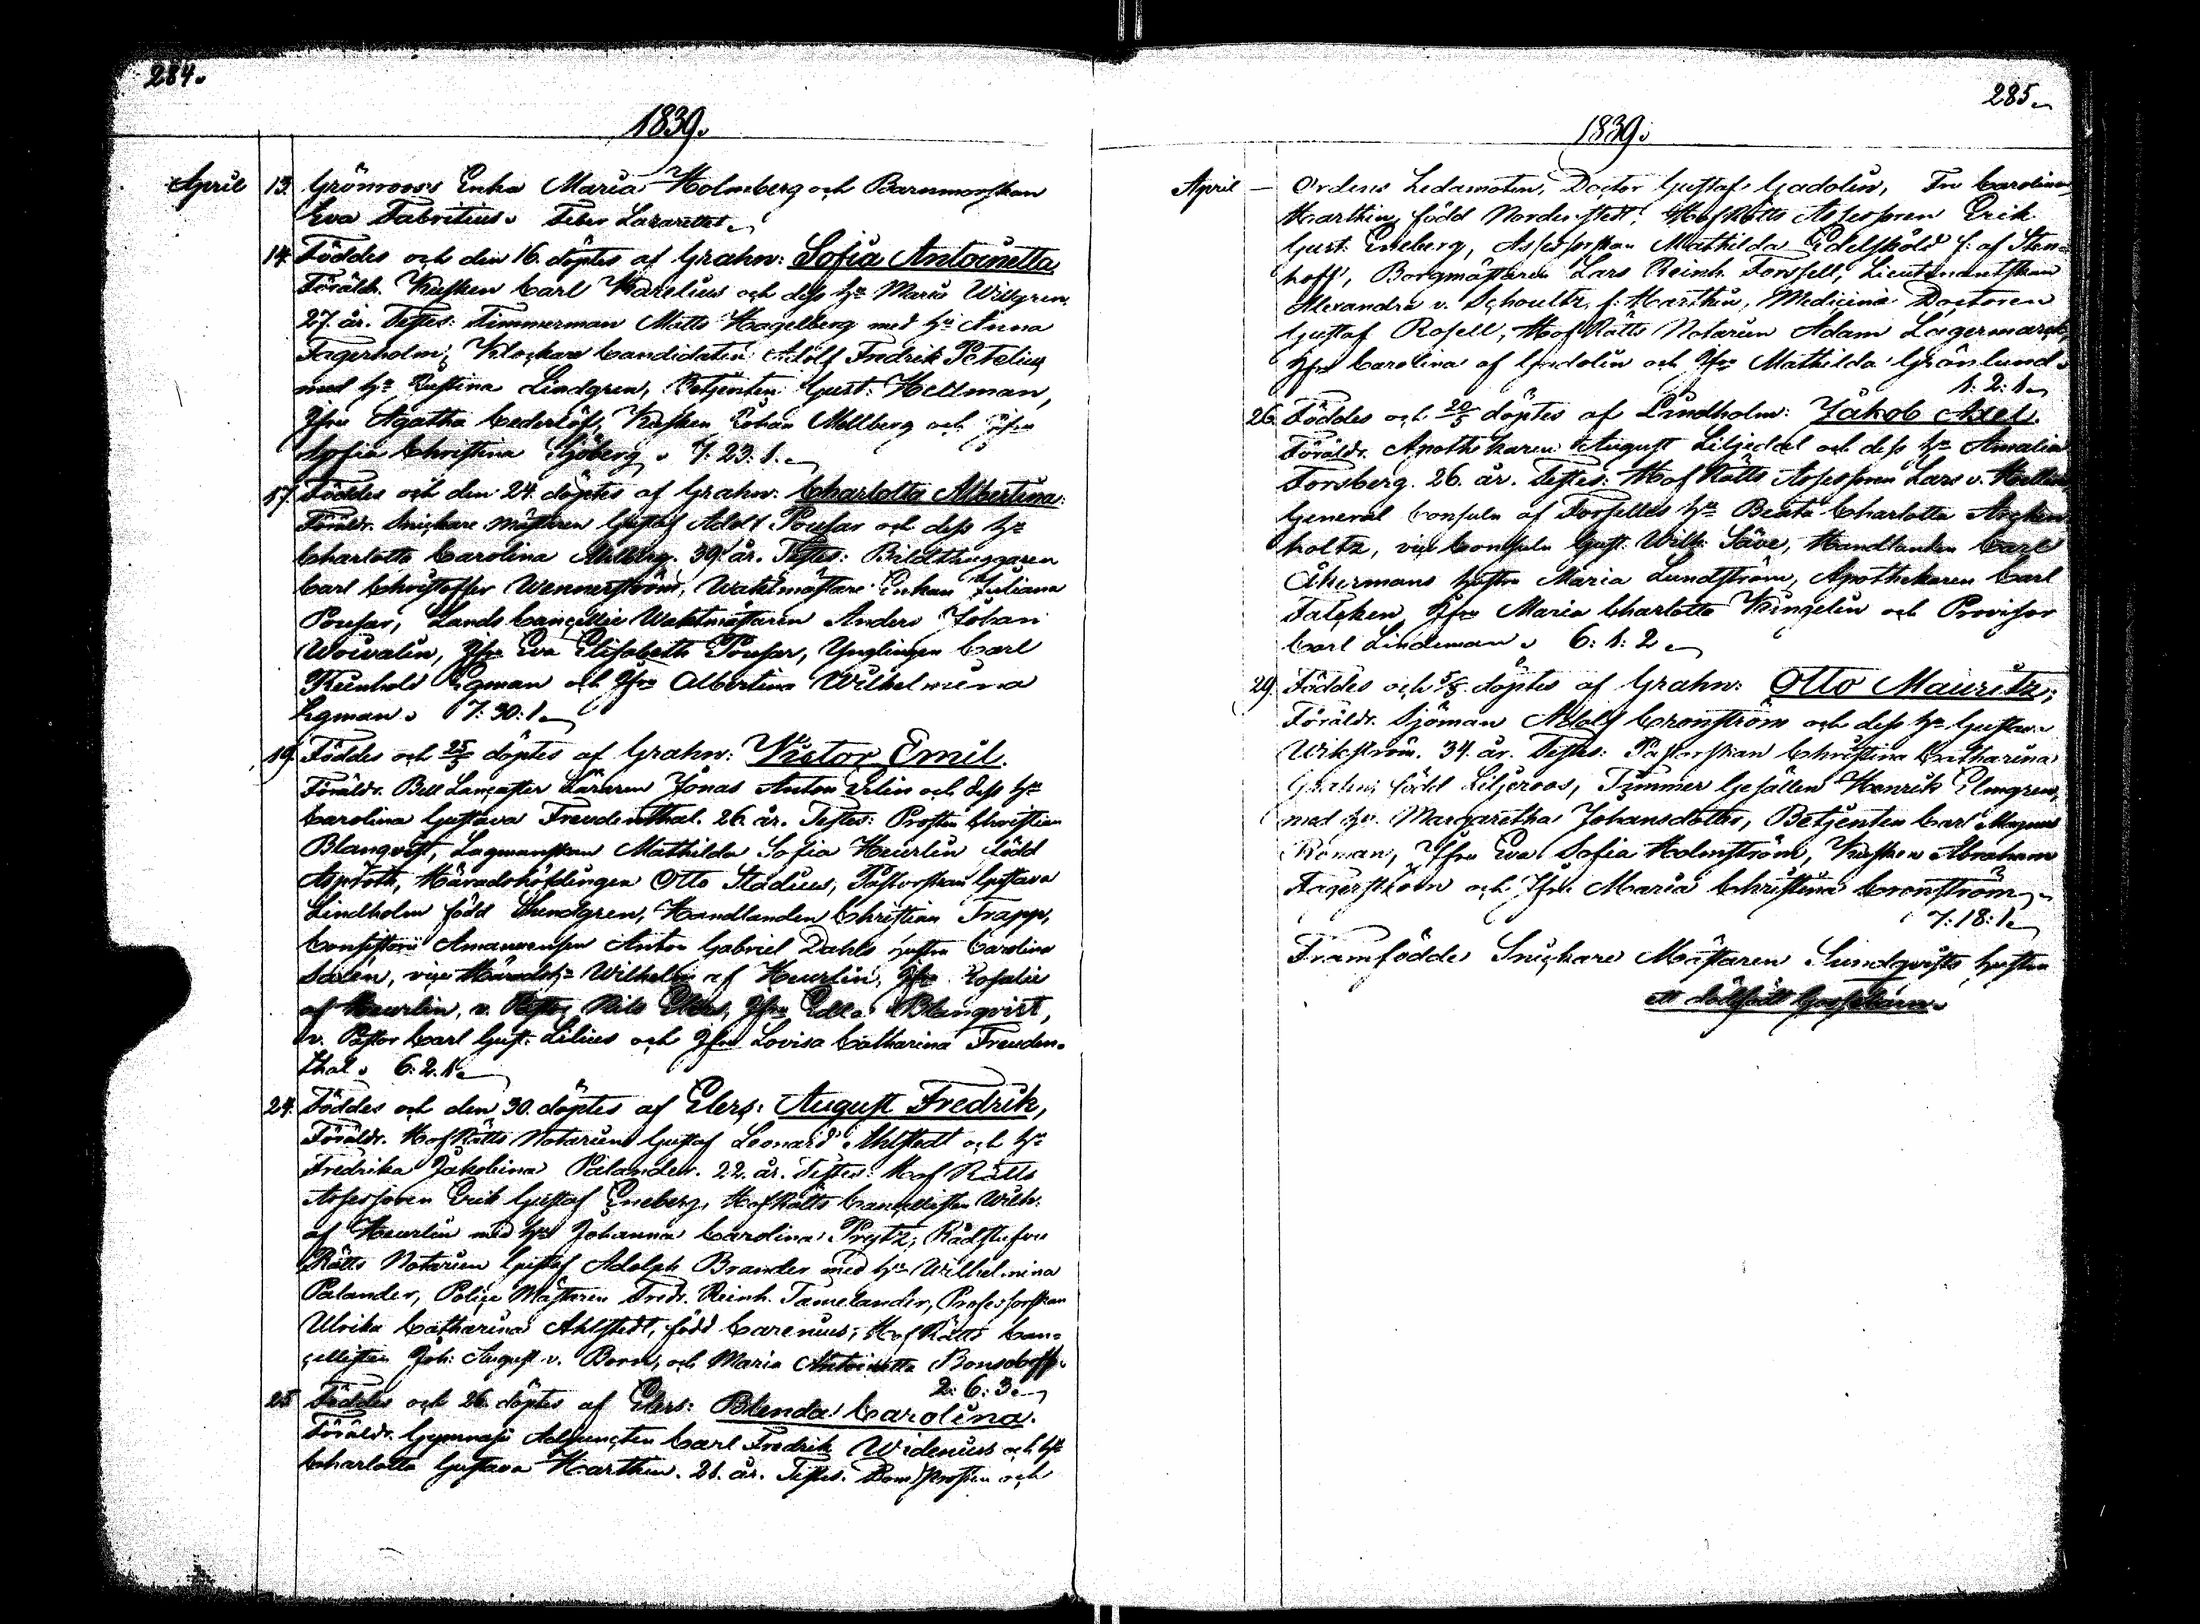 284.
1839.
April 13. Grönroos's Enka Maria Holmberg och Barnmorskan
Eva Fabritius. Feber Lazarettet.
14. Föddes och den 16. döptes af Grahn: Sofia Antoinetta
Föräldr. Kusken Carl Karelius och dess hu Maria Willgren.
27. år. Testes: Timmerman Matts Hagelberg med hu Anna
Fagerholm, Klockare Candidaten Adolf Fredrik Petelius
med hu Justina Lindgren, Betjenten Gust: Hellman,
Jfru Agatha Cederlöf, Kusken Johan Mellberg och Jfru
Sofia Christina Sjöberg. 7: 23: 1.
17. Föddes och den 24. döptes af Grahn: Charlotta Albertina:
Föräldr. Snickare Mästaren Gustaf Adolf Pousar och dess hu
Charlotta Carolina 39. år. Testes: Bildthuggaren
Carl Christoffer Wennerström, Waktmästare Enkan Juliana
Pousar, Lands Cançellie Waktmästaren Anders Johan
Woivalin, Jfru Eva Elisabeth Pousar, Ynglingen Carl
Reinhold Egman och Jfru Albertina Wilhelmina
Egman. 7: 30: 1.
19. Föddes och 25/5 döptes af Grahn: Victor Emil.
Föräldr. Bell Lancaster Läraren Jonas Anton Arlin och dess hu
Carolina Gustava Freudenthal. 26. år. Testes: Prosten Christian
Blanqvist, Lagmanskan Mathilda Sofia Heurlin född
Asproth, Häradshöfdingen Otto Stadius, Pastorskan Gustava
Lindholm född Lundgren, Handlanden Christian Trapp,
Consistorii Amanuensen Anton Gabriel Dahls hustru Carolina
Salén, vice Häradsh. Wilhelm af Heurlin, Jfru Rosalie
af Heurlin, v. Pastor Nils Elers, Jfru Edla Blanqvist,
v. Pastor Carl Gust. Lilius och Jfru Lovisa Catharina Freuden-
thal. 6. 2. 1.
24. Föddes och den 30. döptes af Elers: August Fredrik,
Föräldr. Hof Rätts Notarien Gustaf Leonard Ahlstedt och hu
Fredrika Jakobina Palander. 22. år. Testes: Hof Rätts
Assessoren Erik Gustaf Eneberg, Hof Rätts Cancellisten Wilh:
af Heurlin med hu Johanna Carolina Prytz, Rådstufvu
Rätts Notarien Gustaf Adolph Brander med hu Wilhelmina
Palander, Police Mästaren Fredr. Reinh. Tamelander, Professorskan
Ulrika Catharina Ahlstedt, född Carenius, Hof Rätts Can-
cellisten Joh: August v. Born, och Maria Antoinetta Bonsdorff.
2: 6: 3.
25. Föddes och 26. döptes af Elers: Blenda Carolina.
Föräldr. Gymnasii Adjuncten Carl Fredrik Widenius och hu
Charlotta Gustava Harthin. 21. år. Testes. Dom Prosten och
285.
1839.
April – Ordens Ledamoten, Doctor Gustaf Gadolin, Fru Carolina
Harthin, född Nordenstedt, Hof Rätts Assessoren Erik
Gust: Eneberg, Assessorskan Mathilda Edelsköld f: af Sten-
hoff, Borgmästaren Lars Reinh. Forsell, Lieutenantskan
Alexandra v. Schoultz, f: Harthin, Medicinæ Doctoren
Gustaf Rosell, Hof Rätts Notarien Adam Lagermarck,
Jfru Carolina af Gadolin och Jfru Mathilda Grönlund.
1: 2: 1.
26. Föddes och 20/5 döptes af Lindholm: Jakob Axel.
Föräldr. Apothekaren August Liljedal och dess hu Amalia
Forsberg. 26. år. Testes: Hof Rätts Assessoren Lars v.
General Consuln af Forselles hu Beata Charlotta Arcken-
holtz, vice Consuln Gust. Wilh. Säve, Handlanden Carl
Åkermans hustru Maria Lundström, Apothekaren Carl
Falcken, Jfru Maria Charlotta Kingelin och Provisor
Carl Lindeman. 6: 1: 2.
29. Föddes och 5/5. döptes af Grahn: Otto Mauritz;
Föräldr. Sjöman Adolf Cronström och dess hu Gustava
Wikström. 34. år. Testes: Pastorskan Christina Catharina
född Liljeroos, Timmer Gesällen Henrik Elmgren,
med hu. Margaretha Johansdotter, Betjenten Carl Magnus
Roman, Jfru Eva Sofia Holmström, Kusken Abraham
Fagerström och Jfru Maria Christina Cronström.
7: 18: 1.
Framfödde Snickare Mästaren Sundqvists hustru
ett dödfödt Gossebarn.